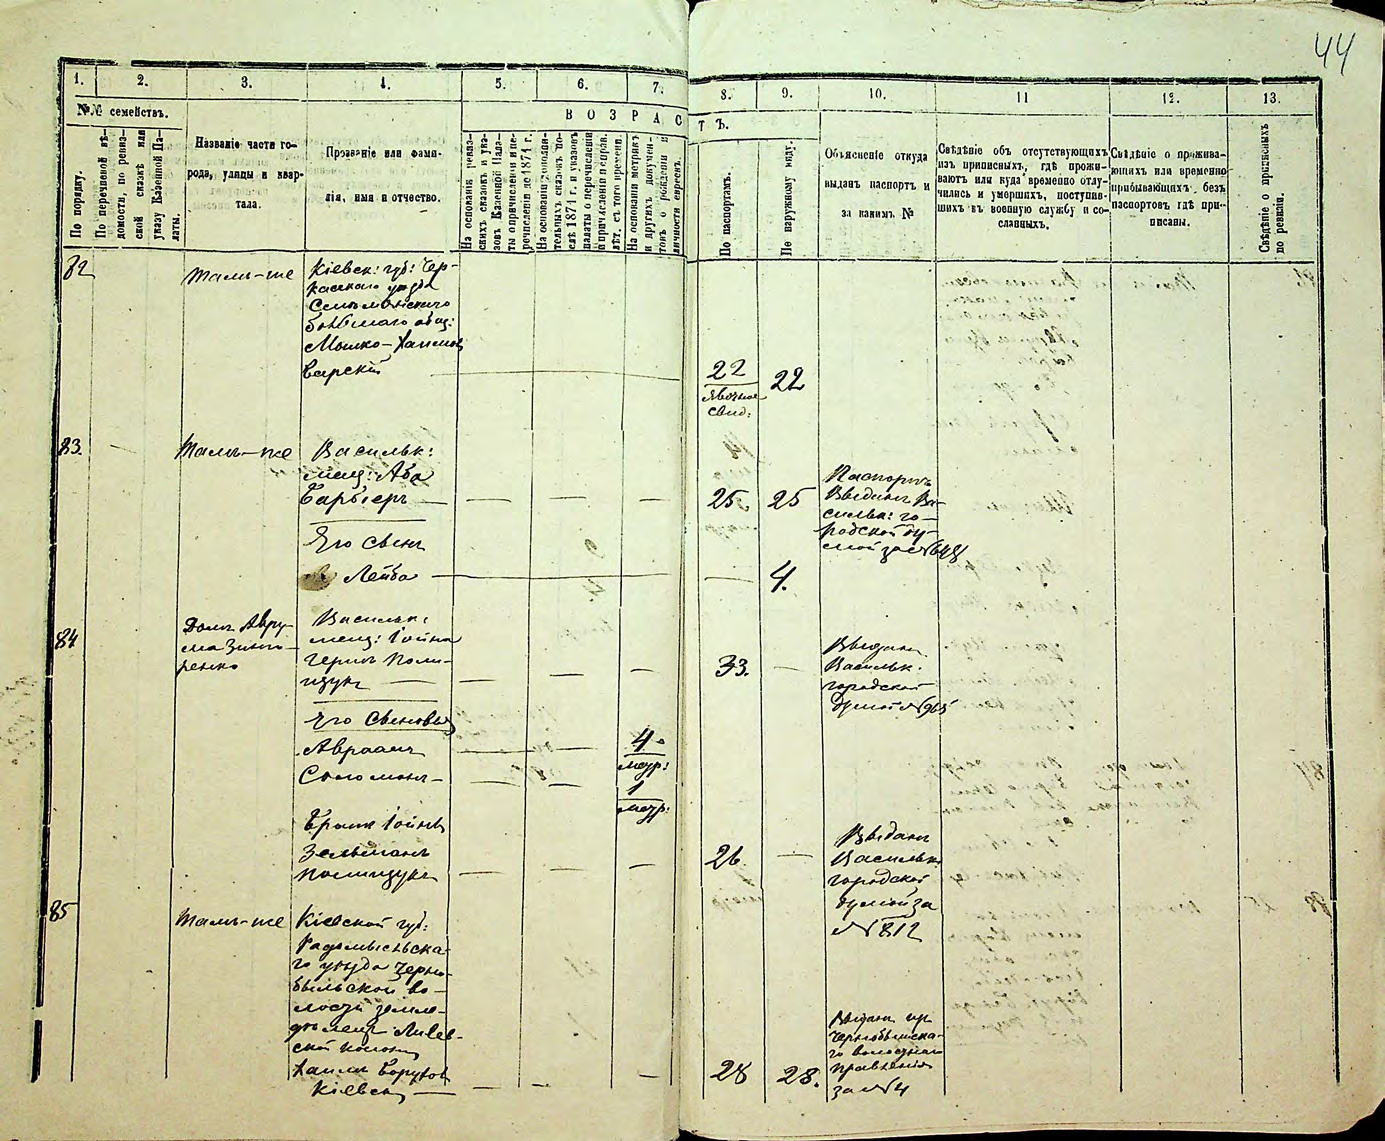 44
1.
2.
3.
4.
5.
6.
7.
8.
9.
10.
11
12.
13.
№№ семействъ.
В О З Р А С
Т Ъ.
По порядку.
По перечневой вѣ-
домости, по ревиз-
ской сказкѣ или
указу Казенной Па-
латы.
Названіе части го-
рода, улицы и квар-
тала.
Прозваніе или фами-
лія, имя и отчество.
На основаніи ревиз-
скихъ сказокъ и ука-
зовъ Казенной Пала-
ты о причисленіи и пе-
речисленіи до 1874 г.
На основаніи дополни-
тельныхъ сказокъ по-
слѣ 1874 г. и указовъ
палаты о перечисленіи
и причисленіи и справ.
лѣт. съ того времени.
На основаніи метрикъ
и другихъ докумен-
товъ о рожденіи и
личности евреевъ.
По паспортамъ.
По наружному виду.
Объясненіе откуда
выданъ паспортъ и
за какимъ №
Свѣдѣніе объ отсутствующихъ
изъ приписныхъ, гдѣ прожи-
ваютъ или куда временно отлу-
чились и умершихъ, поступив-
шихъ въ военную службу и со-
сланныхъ.
Свѣдѣніе о прожива-
ющихъ или временно
прибывающихъ безъ
паспортовъ гдѣ при-
писаны.
Свѣдѣніе о приписныхъ
по ревизіи.
82
Тамъ-же
Кіевск: губ: Чер-
касскаго уѣзда
бывшаго общ:
Мошко-Хаимов
Варскій
22
Явочное
свид:
22
83.
Тамъ-же
Васильк:
мещ: Аба
Барбіеръ
25
25
Паспортъ
Выданъ Ва-
сильк: го-
родской ду-
мой за №648
Его сынъ
Лейба
4.
84
Домъ Авру-
ма Зинго-
ренко
Васильк:
мещ: Іойна
Герш Поли-
щукъ
33.
Выданъ
Васильк.
городской
думой №965
Его сыновья
Авраамъ
4
метр:
Соломонъ
1
метр:
Братъ Іойны
Зельманъ
Полищукъ
26
Выданъ
Васильк:
городской
думой за
№812
85
Тамъ-же
Кіевской губ:
Радомысльска-
го уѣзда Черно-
быльской во-
лости земле-
дѣлецъ
ской колоніи
Хаимъ Борухов
Кіевск
28
28.
Выданъ
Чернобыльска-
го волостнаго
правленія
за №4